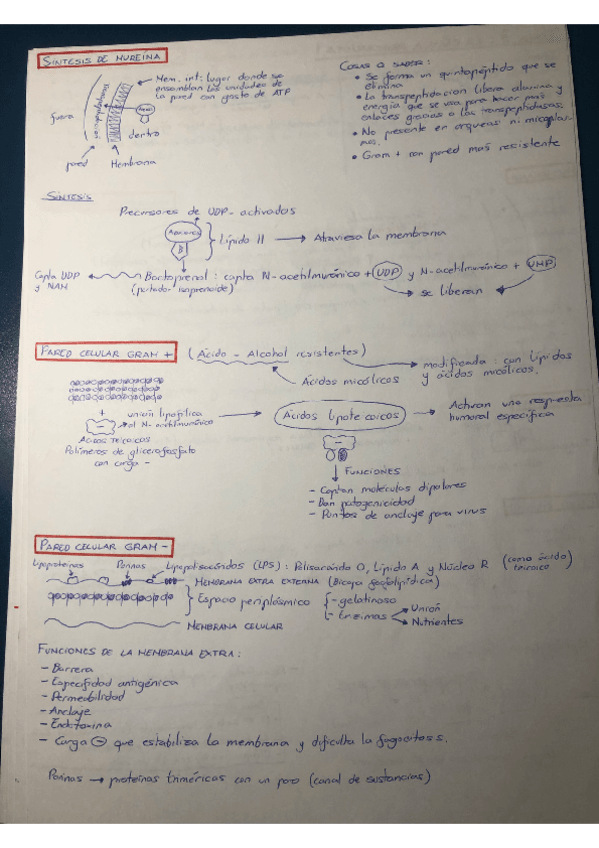 SÍNTESIS DE MUREÍNA
Mem. int: lugar donde se
ensamblan las unidades de
la pared con gasto de ATP
fuera
dentro
pared
Membrana
COSAS A SABER:
• Se forma un quintopéptido que se
elimina
• La transpeptidación libera alanina y
energía que se usa para hacer más
enlaces gracias a las transpeptidasas.
• No presente en arqueas ni micoplas-
mas.
• Gram + con pared más resistente
SÍNTESIS
Precursores de UDP-activados
Lípido II → Atraviesa la membrana
P
Capta UDP
y NAM
Bactoprenol: capta N-acetilmurámico + UDP y N-acetilmurámico + UMP
(portador isoprenoide)
se liberan
PARED CELULAR GRAM +
(Ácido - Alcohol resistentes)
Ácidos micólicos
modificada: con lípidos
y ácidos micólicos.
+
unión lipofílica
al N-acetilmurámico
ÁCIDOS TEICOICOS
Polímeros de glicerofosfato
con carga -
Ácidos lipoteicoicos
Activan una respuesta
humoral específica
FUNCIONES
- Captan moléculas dipolares
- Dan patogenicidad
- Puntos de anclaje para virus
PARED CELULAR GRAM -
Lipoproteínas
Porinas
Lipopolisacáridos (LPS): Polisacárido O, Lípido A y Núcleo R
(como ácido
teicoico)
MEMBRANA EXTRA EXTERNA (Bicapa fosfolipídica)
Espacio periplásmico
- gelatinoso
- Enzimas
Unión
Nutrientes
MEMBRANA CELULAR
FUNCIONES DE LA MEMBRANA EXTRA:
- Barrera
- Especifidad antigénica
- Permeabilidad
- Anclaje
- Endotoxina
- Carga ⊖ que estabiliza la membrana y dificulta la fagocitosis.
Porinas → proteínas triméricas con un poro (canal de sustancias)